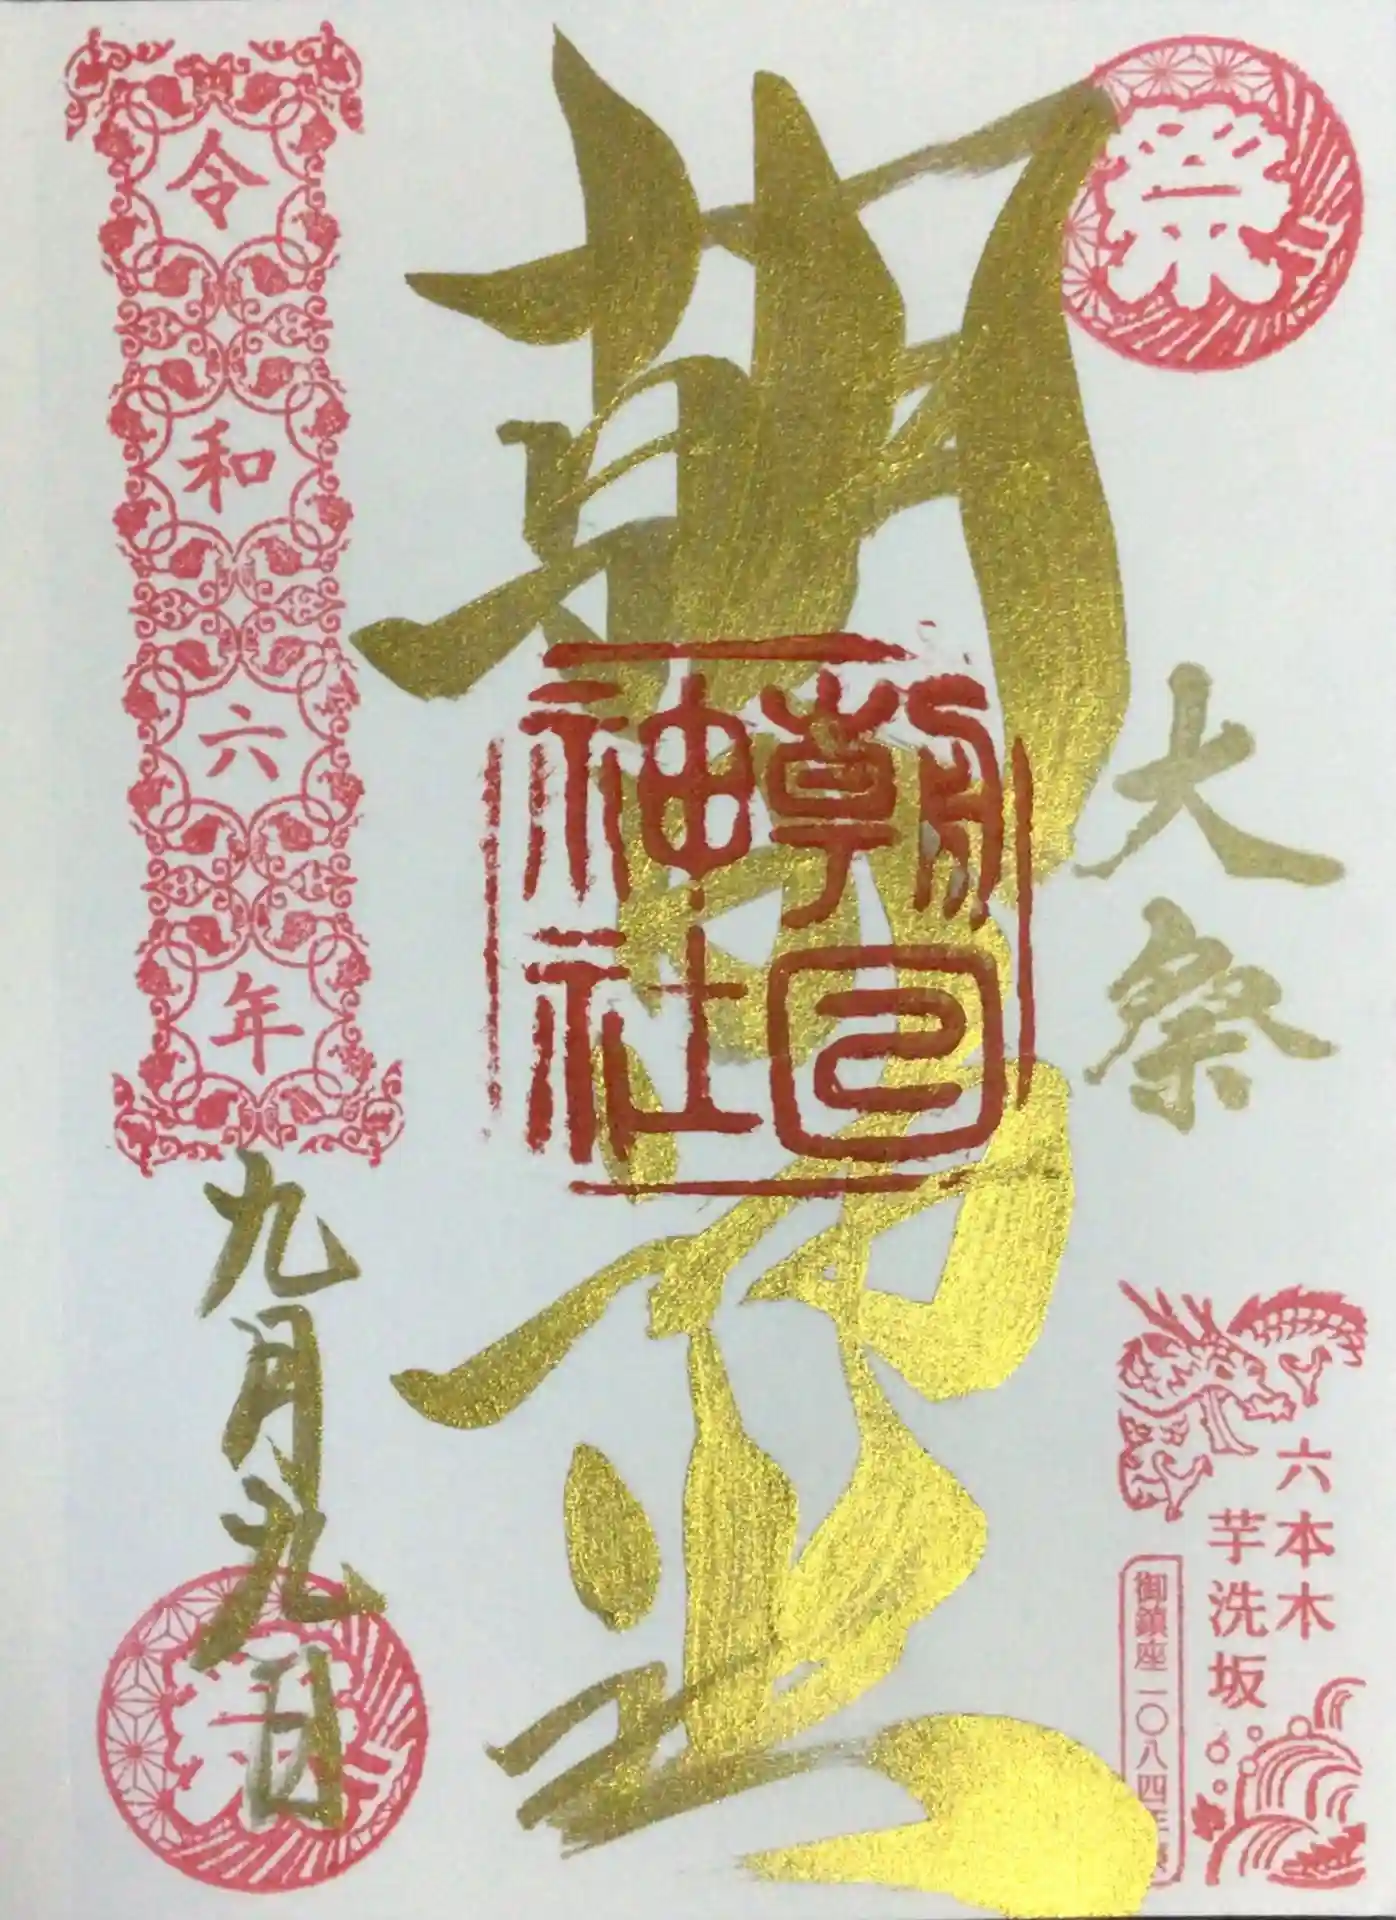 祭
大祭
六本木
芋洗坂
御鎮座一〇八四
朝日
神社
令和六年
九月九日
祭